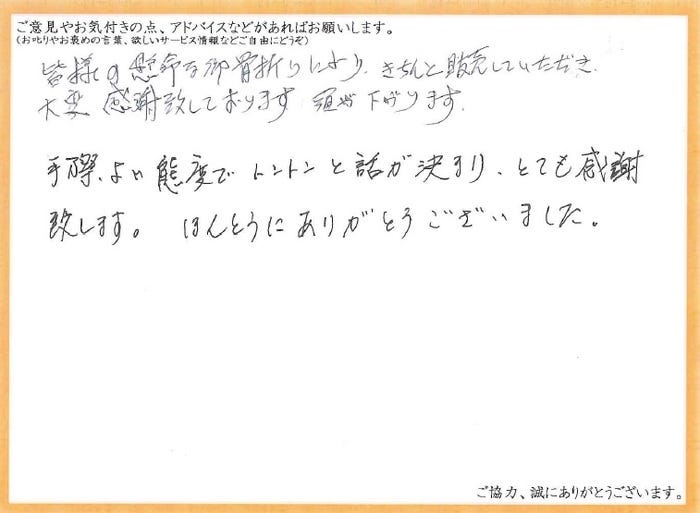 ご意見やお気付きの点、アドバイスなどがあればお願いします。
(お叱りやお褒めの言葉、欲しいサービス情報などご自由にどうぞ)
皆様の懸命な御骨折りにより、きちんと販売していただき、
大変感謝致しております 頭が下がります。
手際、よい態度でトントンと話が決まり、とても感謝
致します。 ほんとうにありがとうございました。
ご協力、誠にありがとうございます。